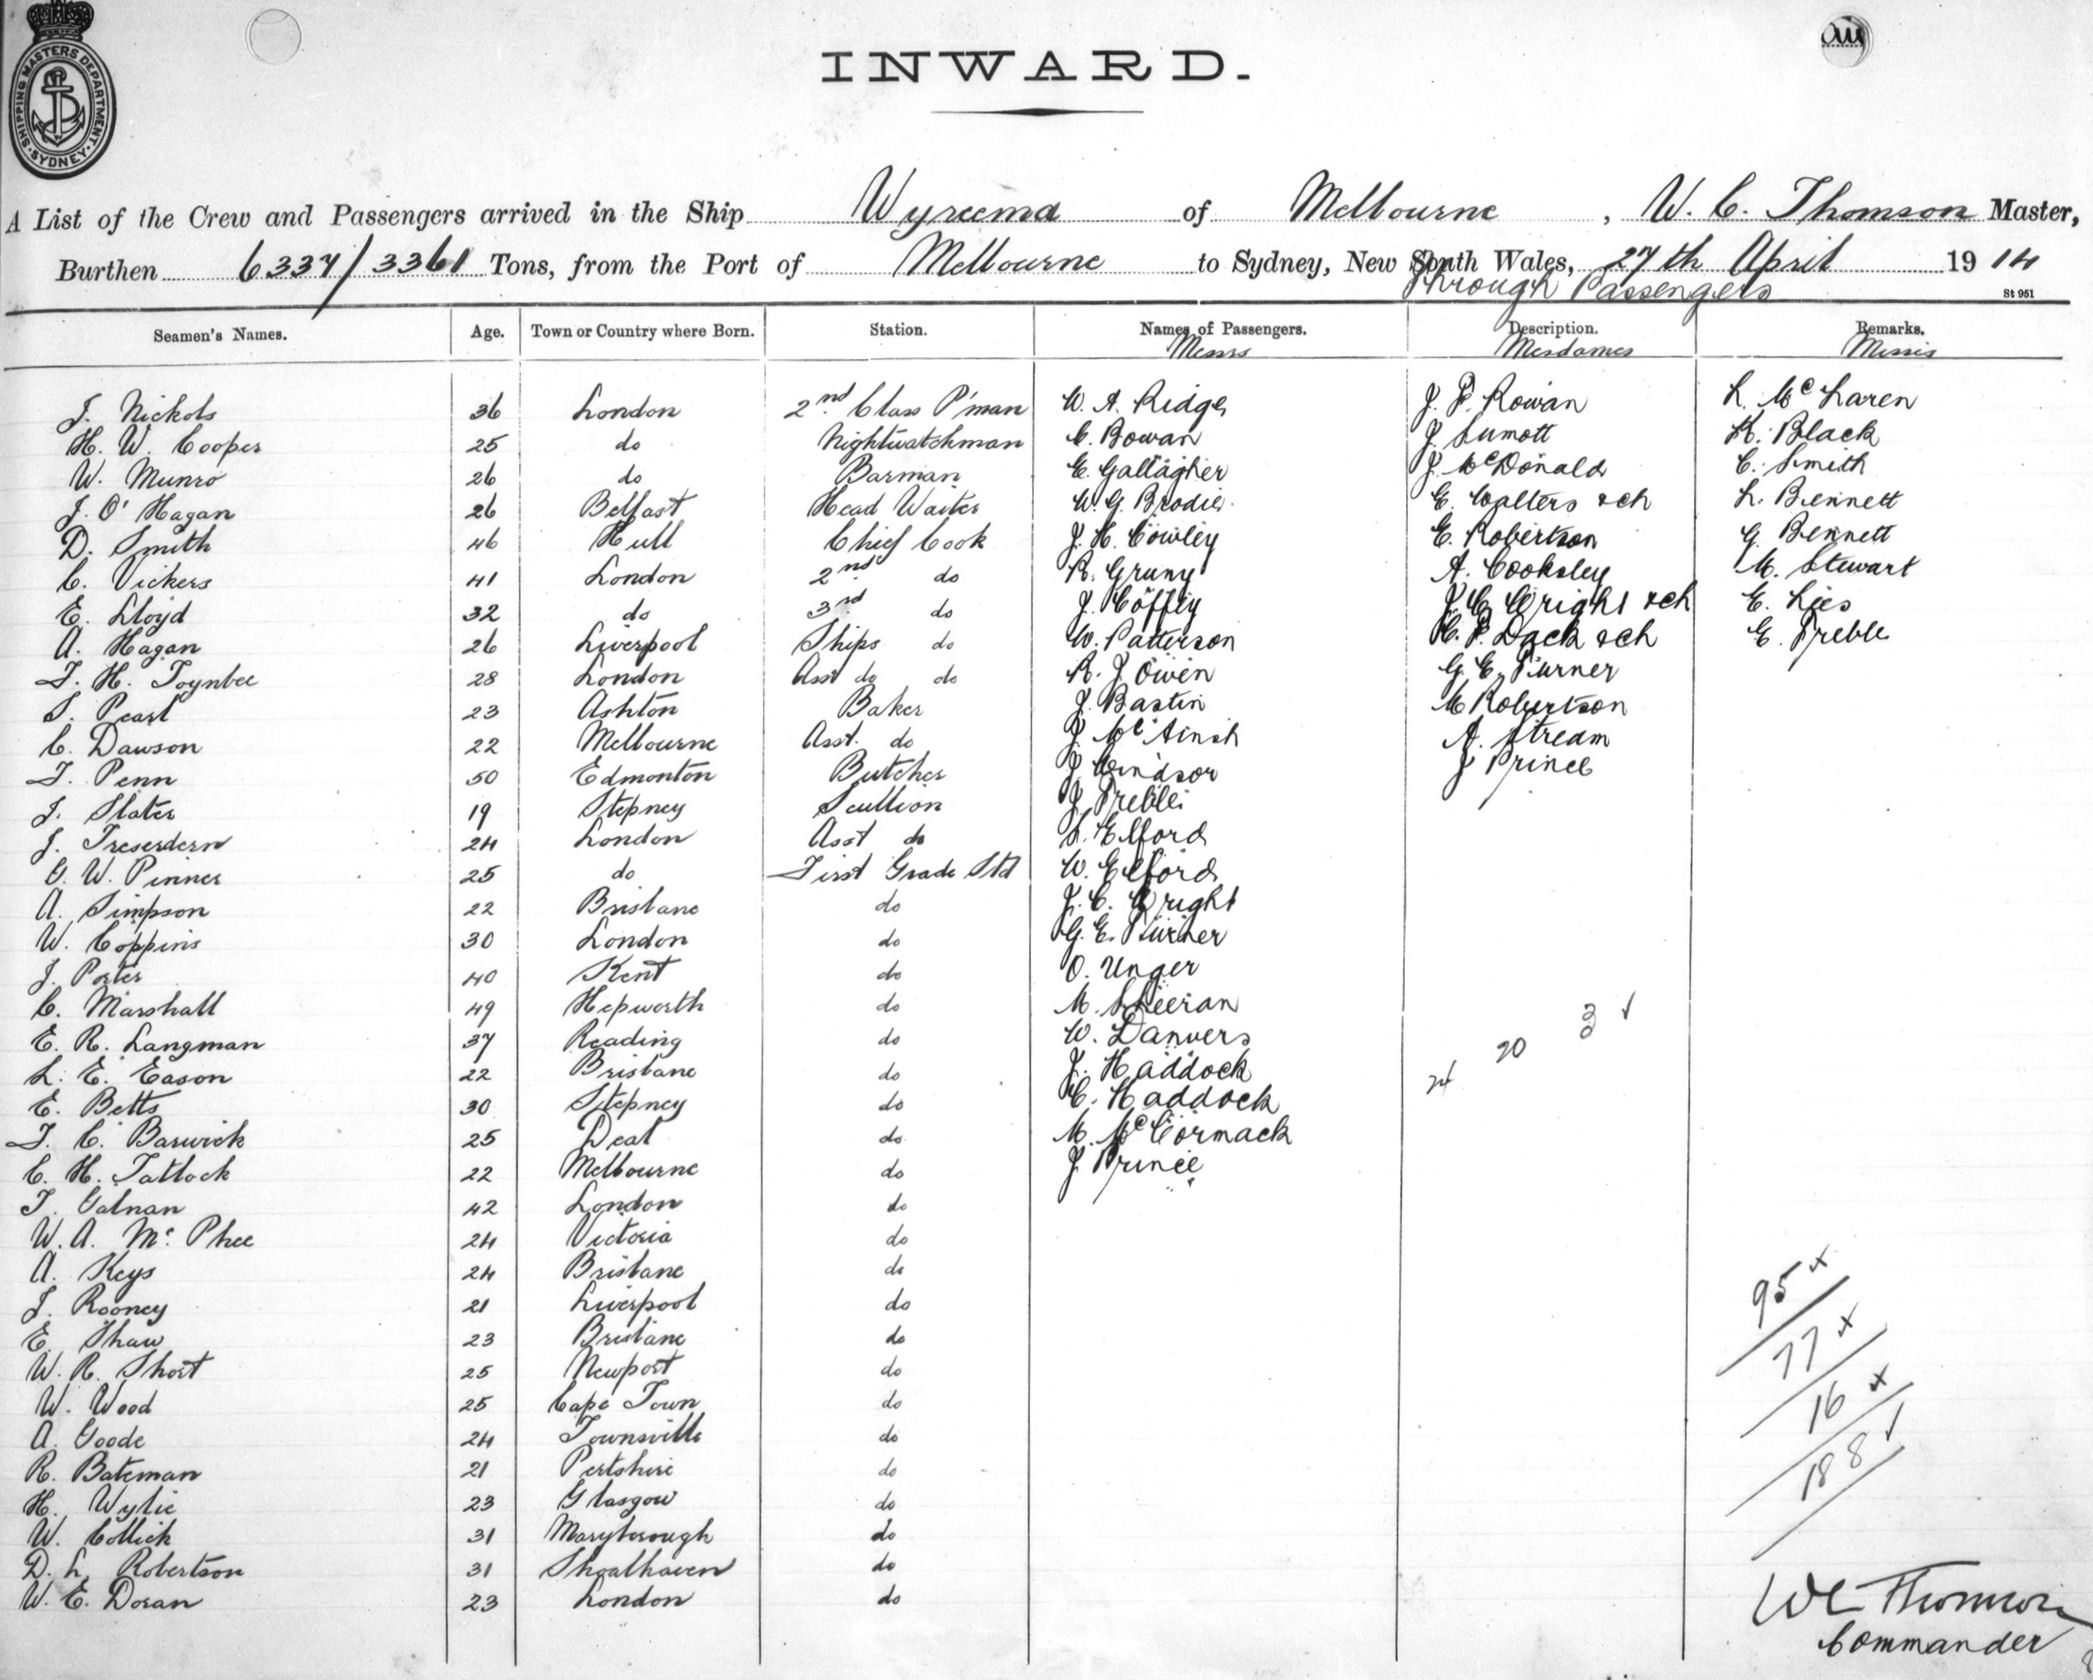 SHIPPING MASTERS DEPARTMENT
SYDNEY
INWARD.
A List of the Crew and Passengers arrived in the Ship Wyreema of Melbourne, W. C. Thomson Master,
Burthen 6337/3361 Tons, from the Port of Melbourne to Sydney, New South Wales, 27th April 1914
Through Passengers
St 951
Seamen's Names. Age. Town or Country where Born. Station. Names of Passengers. Description. Remarks.
Messrs Mesdames Misses
J. Nickols 36 London 2nd Class P'man W. A. Ridge J. P. Rowan L. McLaren
H. W. Cooper 25 do Nightwatchman C. Bowan J. Lumott K. Black
W. Munro 26 do Barman E. Gallagher J. McDonald C. Smith
J. O'Hagan 26 Belfast Head Waiter W. G. Brodie E. Walters & ch L. Bennett
D. Smith 46 Hull Chief Cook J. H. Cowley E. Robertson G. Bennett
C. Vickers 41 London 2nd do R. Gruny A. Cooksley M. Stewart
E. Lloyd 32 do 3rd do J. Coffey J. C. Wright & ch E. Lies
A. Hagan 26 Liverpool Ships do W. Patterson C. P. Dack & ch E. Treble
F. H. Toynbee 28 London Asst do do R. J. Owen G. E. Turner
S. Pearl 23 Ashton Baker J. Bastin M Robertson
C. Dawson 22 Melbourne Asst. do J McAinsh A. Stream
F. Penn 50 Edmonton Butcher J Windsor J Prince
J. Slater 19 Stepney Scullion J Treble
J. Treserdern 24 London Asst do L. Elford
G. W. Pinner 25 do First Grade Std W. Elford
A. Simpson 22 Brisbane do J. C. Wright
W. Coppins 30 London do G. E. Turner
J. Porter 40 Kent do O. Unger
C. Marshall 49 Hepworth do M. Sheeran
E. R. Langman 37 Reading do W. Danvers
L. E. Eason 22 Brisbane do J. Haddock
E. Betts 30 Stepney do C. Haddock
F. C. Barwick 25 Deal do M. McCormack
C. H. Tatlock 22 Melbourne do J Prince
24 20 3
T. Galnan 42 London do
W. A. McPhee 24 Victoria do
A. Keys 24 Brisbane do
J. Rooney 21 Liverpool do
E. Shaw 23 Brisbane do
W. R. Short 25 Newport do
W. Wood 25 Cape Town do
A. Goode 24 Townsville do
R. Bateman 21 Pertshire do
H. Wylie 23 Glasgow do
W. Collick 31 Maryborough do
D. L. Robertson 31 Shoalhaven do
W. E. Doran 23 London do
95
77
16
188
WC Thomson
Commander